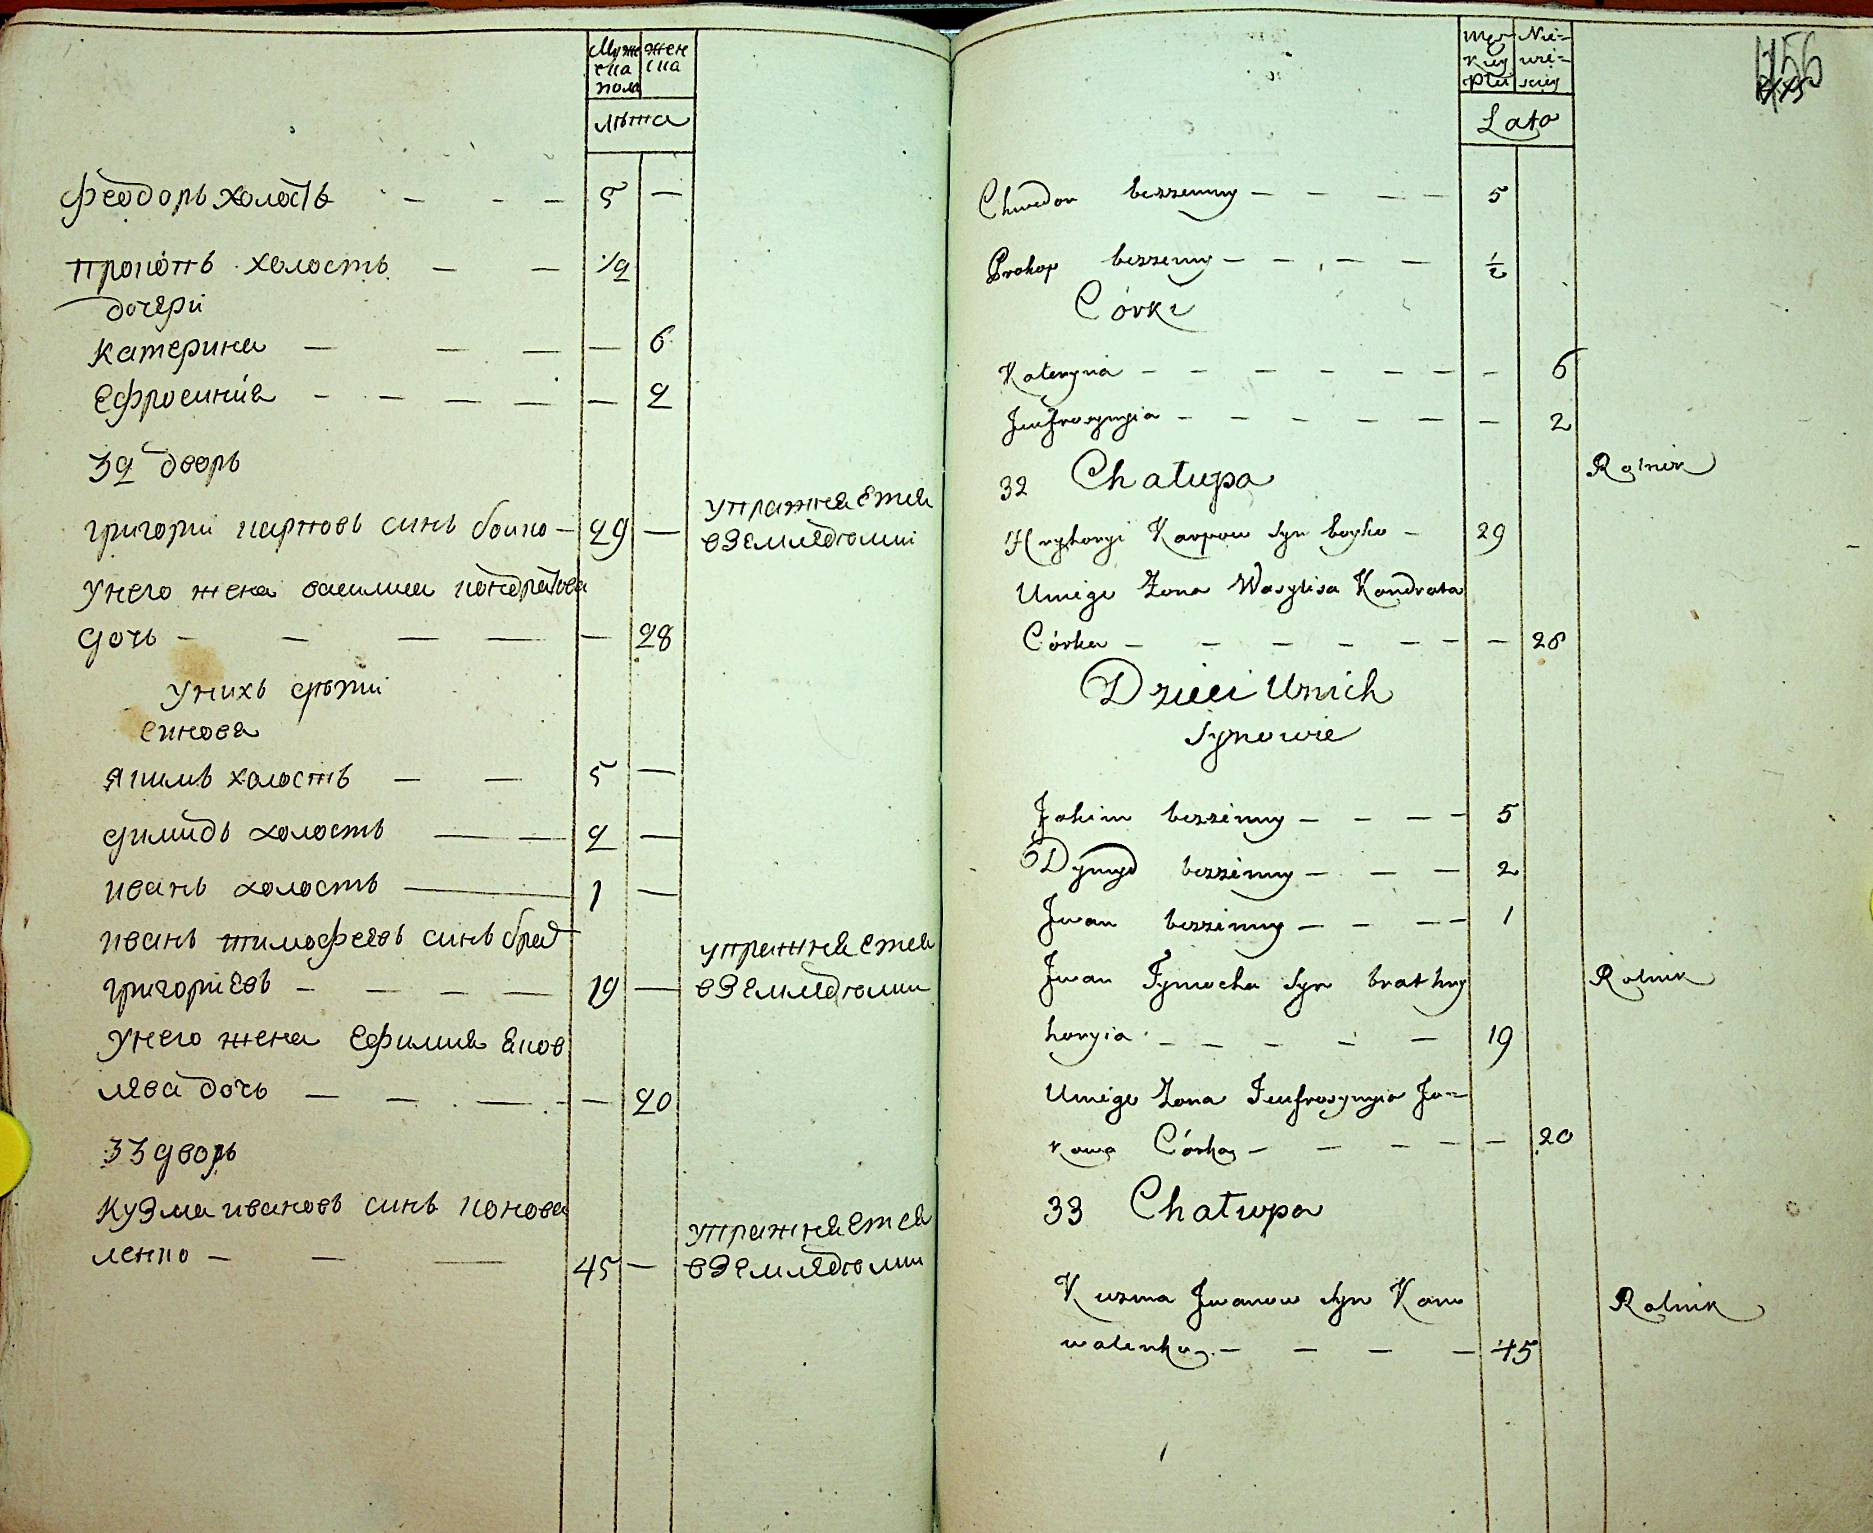 Муж жен
ска ска
пола
лѣта
Феодоръ холостъ — — — 5 —
прокопъ холостъ — — ½
дочери
катерина — — — — 6
Ефросиния — — — — — 2
32 дворъ
григории карповъ синъ боико — 29 — упражняется
в Земледюлии
унего жена василиса кондратова
дочь — — — — — 28
унихъ дѣти
синовя
якимъ холостъ — — 5 —
димидъ холостъ — — 2 —
иванъ холостъ — 1 —
иванъ тимофеевъ синъ брат упражняется
григориевъ — — — — 19 — в Земледюлии
унего жена Ефимия яков
лева дочь — — — — 20
33 дворъ
кузма ивановъ синъ конова упражняется
ленко — — — 45 — в Земледюлии
męz Nie=
kiey wie=
płci sciey
Lata
156
Chwedor bezzenny — — — — 5
Prokop bezzenny — — — — ½
Córki
Kateryna — — — — — — — — 6
Jeufrosynyia — — — — — — — 2
32 Chałupa Rolnik
Hryhoryi Karpow Syn boyko — 29
Uniego Zona Wasylisa Kondrata
Córka — — — — — — — 28
Dzieci Unich
Synowie
Jakim bezzenny — — — — 5
Dymyd bezzenny — — — 2
Jwan bezzenny — — — — 1
Jwan Tymocha Syn brat hry Rolnik
horyia — — — — — 19
Uniego Zona Jeufrosynyia Ja=
kowa Córka — — — — — — 20
33 Chałupa
Kuzma Jwanow Syn Kono Rolnik
walenko — — — — 45